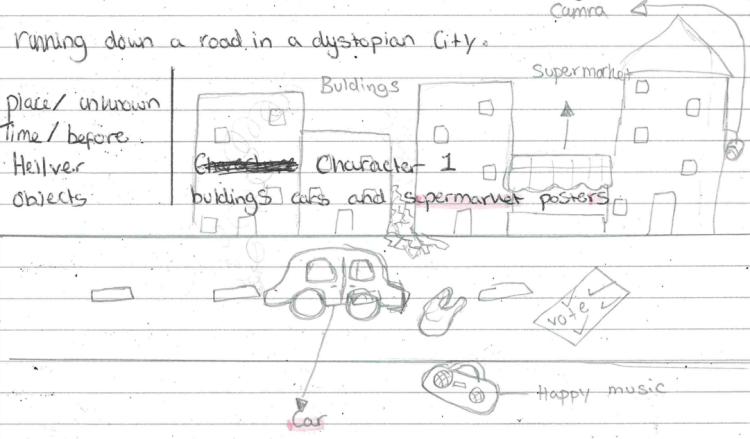 Camra
running down a road in a dystopian City.
Supermarket
Buldings
place/unknown
Time/before
Hei/ver Character 1
objects buldings cars and supermarket posters
vote
Happy music
Car